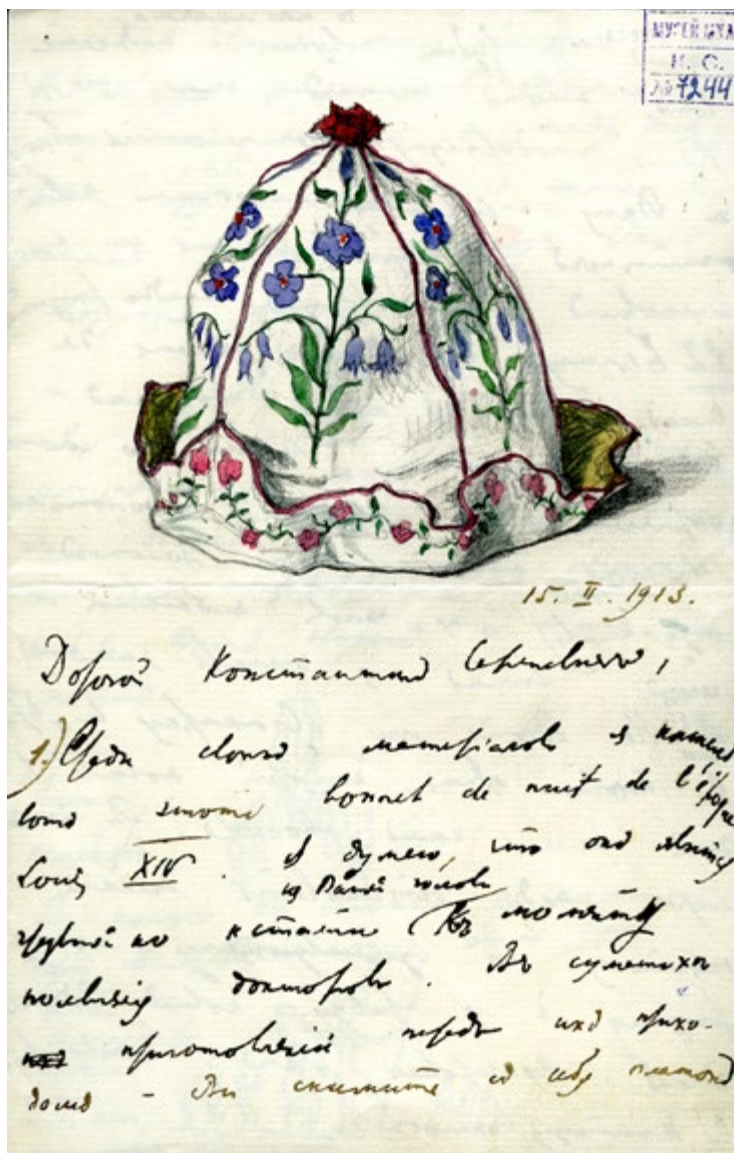 МУЗЕЙ МХА
№ 7244
15. II. 1913.
Дорогой Константинъ Сергеевичъ,
1.) Среди своихъ матеріаловъ я нашелъ
bonnet de nuit de l'époque
Louis XIV. Я думаю, что онъ явится
на Вашей головѣ
кстати къ моменту
появленія докторовъ. Въ суматохѣ
приготовленій передъ ихъ прихо-
домъ - Вы снимите съ себя платокъ